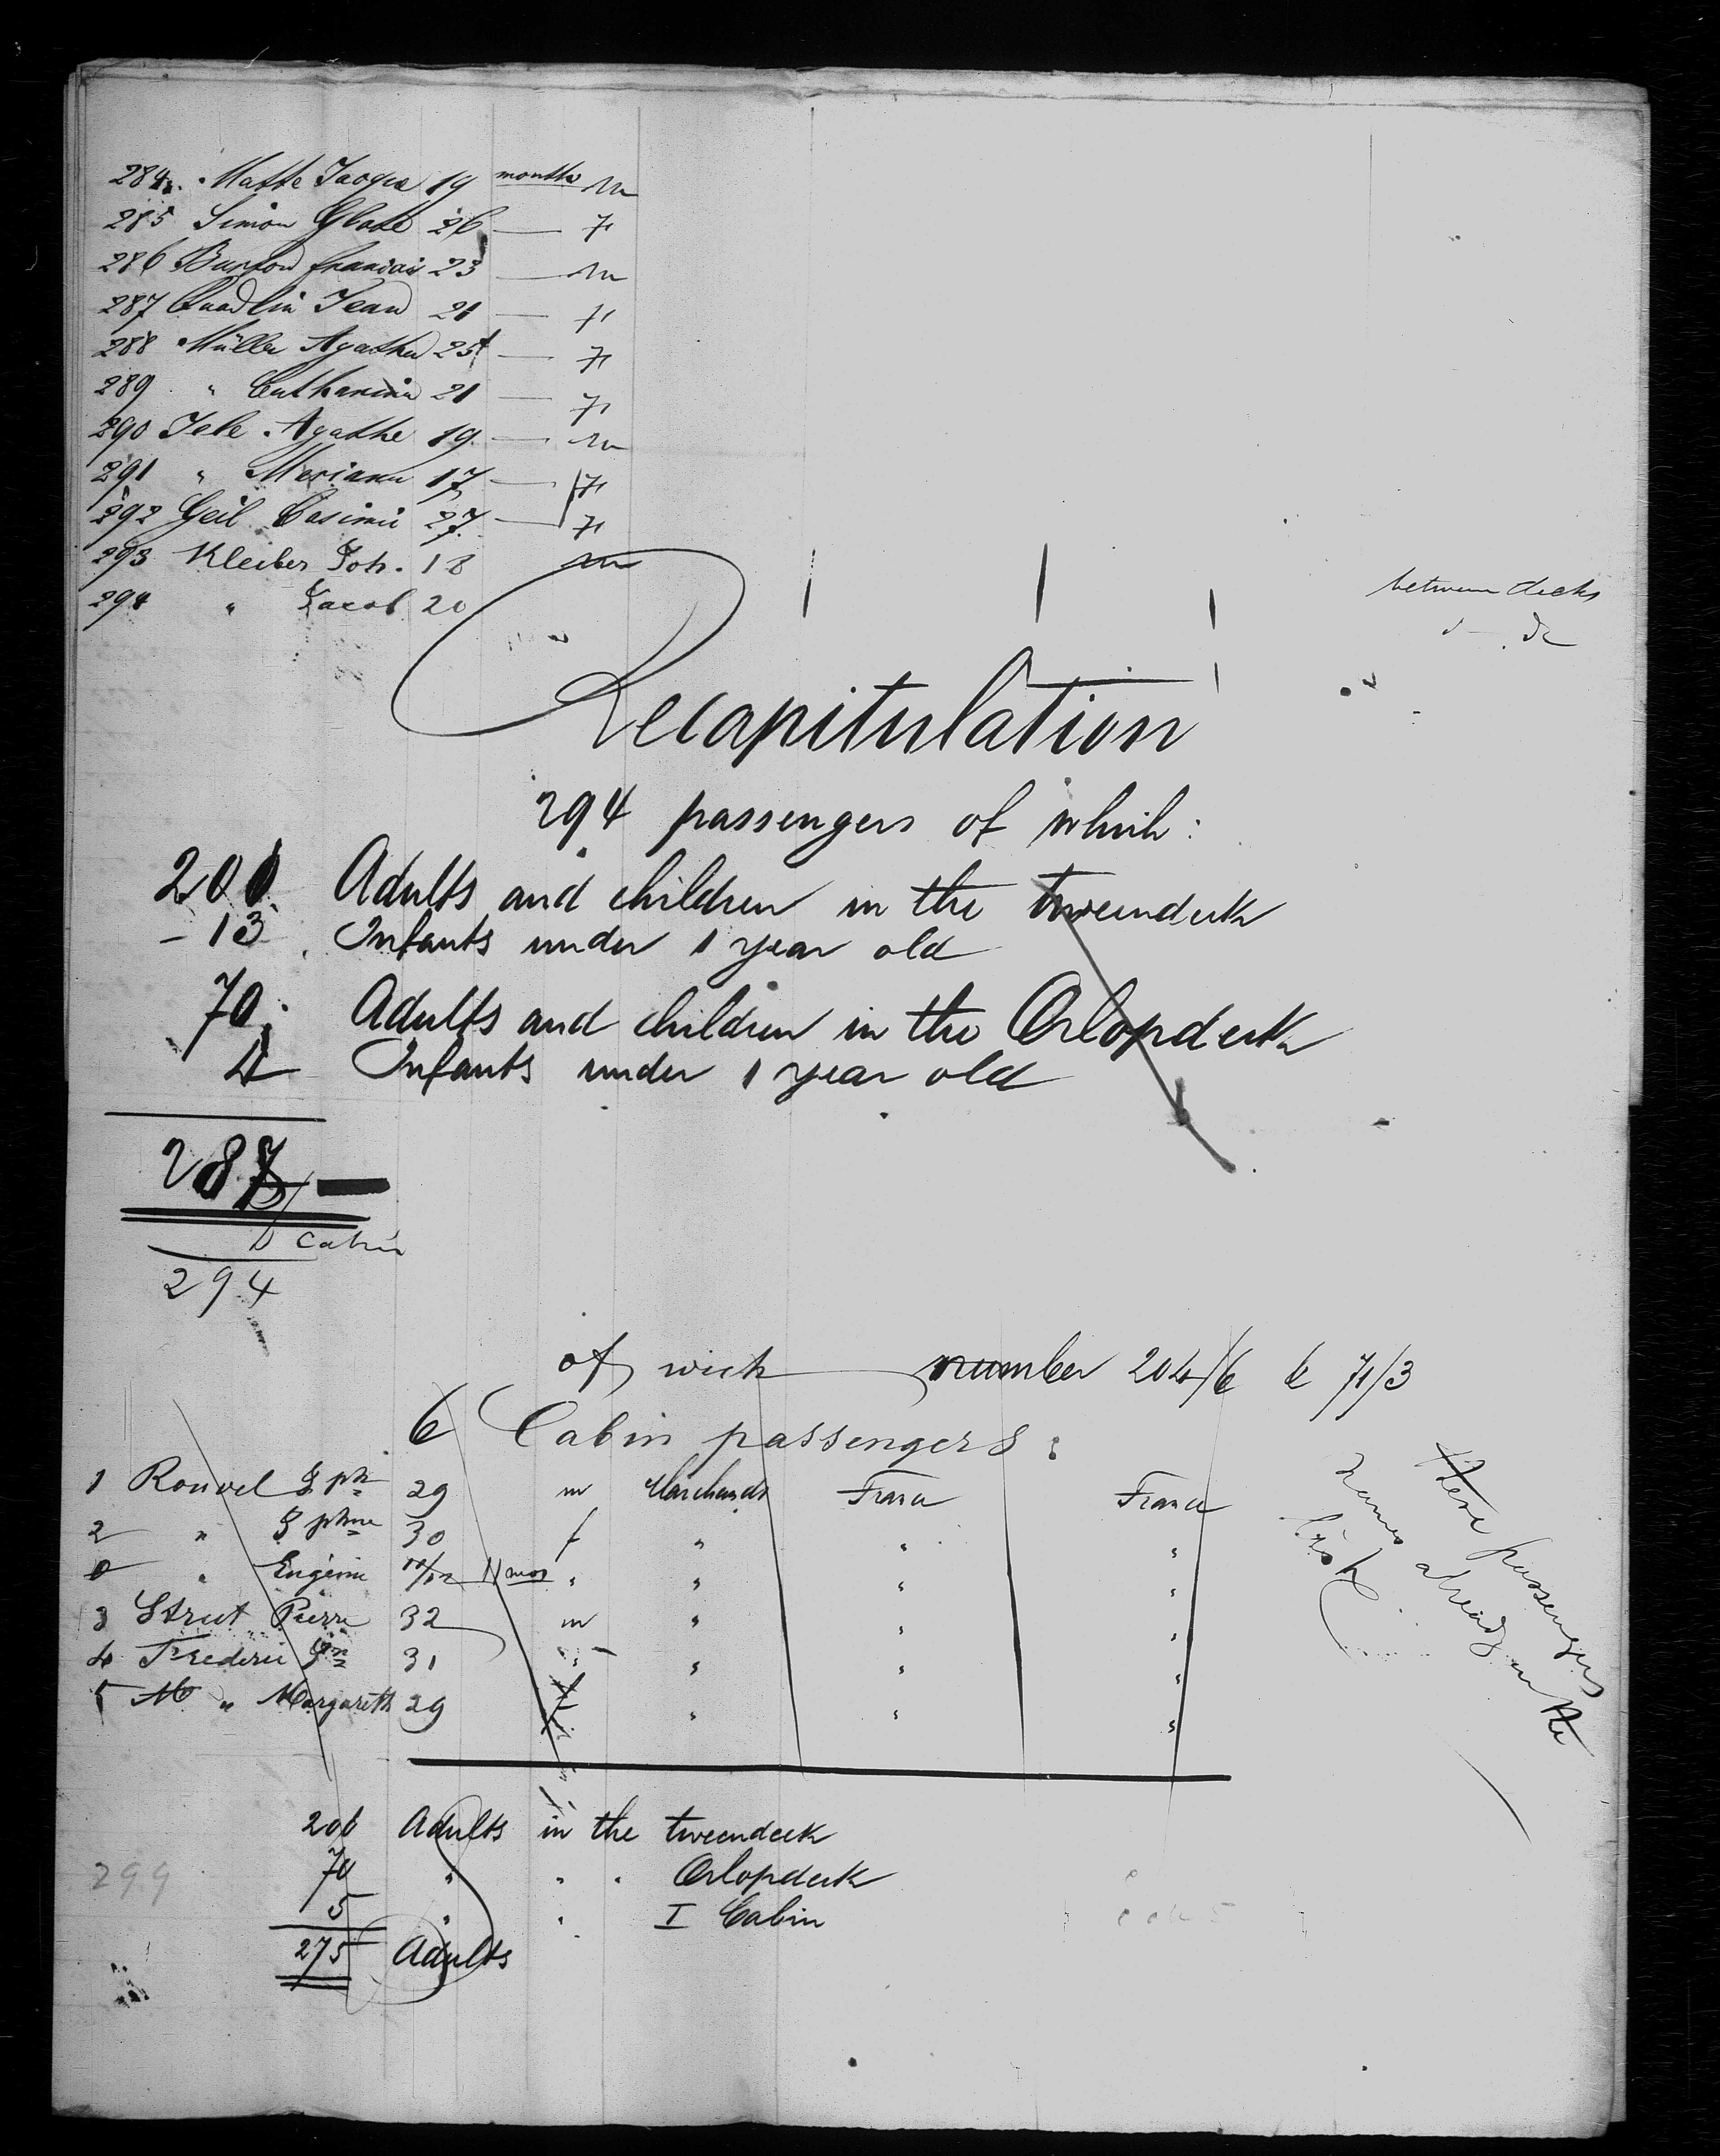 284 Matte 19 months m
285 Simon 26 — f
286 francois 23 — m
287 Jean 21 — f
288 Müller Agatha 25 — f
289 " Catharina 21 — f
290 Agathe 19 — m
291 " Meriana 17 — f
292 Geil Casimir 27 — f
293 Kleiber Joh. 18 m between decks
294 " Jacob 20
Recapitulation
294 passengers of which:
200 Adults and children in the tweendeck
13 Infants under 1 year old
70 Adults and children in the Orlopdeck
4 Infants under 1 year old
287
Cabin
294
of wich number 204/6 & 71/3
6 Cabin passengers:
1 Rouvel Jph 29 m Marchands France France
2 " Jphine 30 f " " "
0 " Eugénie 11/12 11 mos " " " "
3 Strut Pierre 32 m " " "
4 Frederic 31 " " " "
5 " Margareth 29 f " " "
These passengers
names already on the
list
206 Adults in the tweendeck
70 " " " Orlopdeck
5 " " I Cabin
275 Adults
299